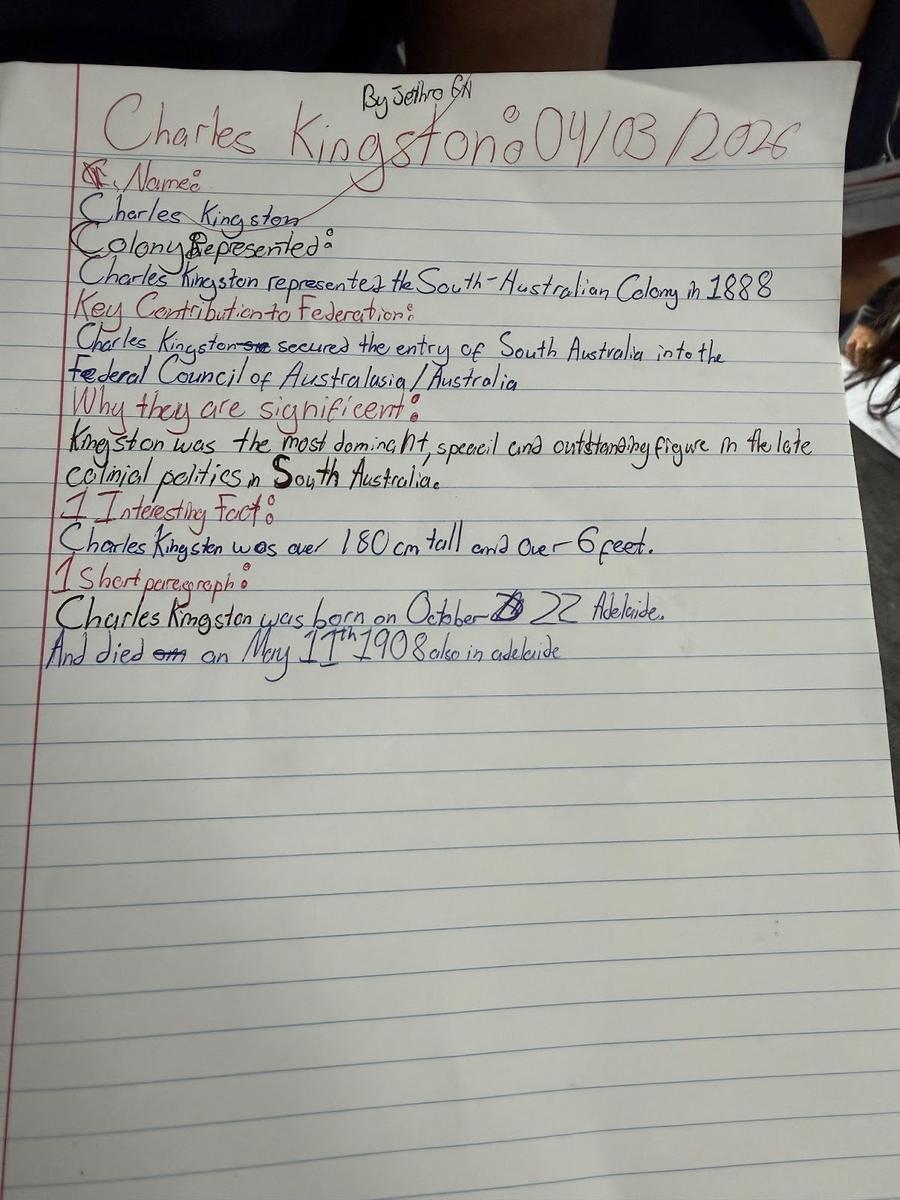 By Jethro GN
Charles Kingston: 04/03/2026
Name:
Charles Kingston
Colony Represented:
Charles Kingston represented the South-Australian Colony in 1888
Key Contribution to Federation:
Charles Kingston secured the entry of South Australia into the
Federal Council of Australasia/Australia
Why they are significent:
Kingston was the most dominant, speacil and outstanding figure in the late
colinial politics in South Australia.
1 Interesting Fact:
Charles Kingston was over 180 cm tall and over 6 feet.
1 Short paragraph:
Charles Kingston was born on October 22 Adelaide.
And died on May 11th 1908 also in adelaide